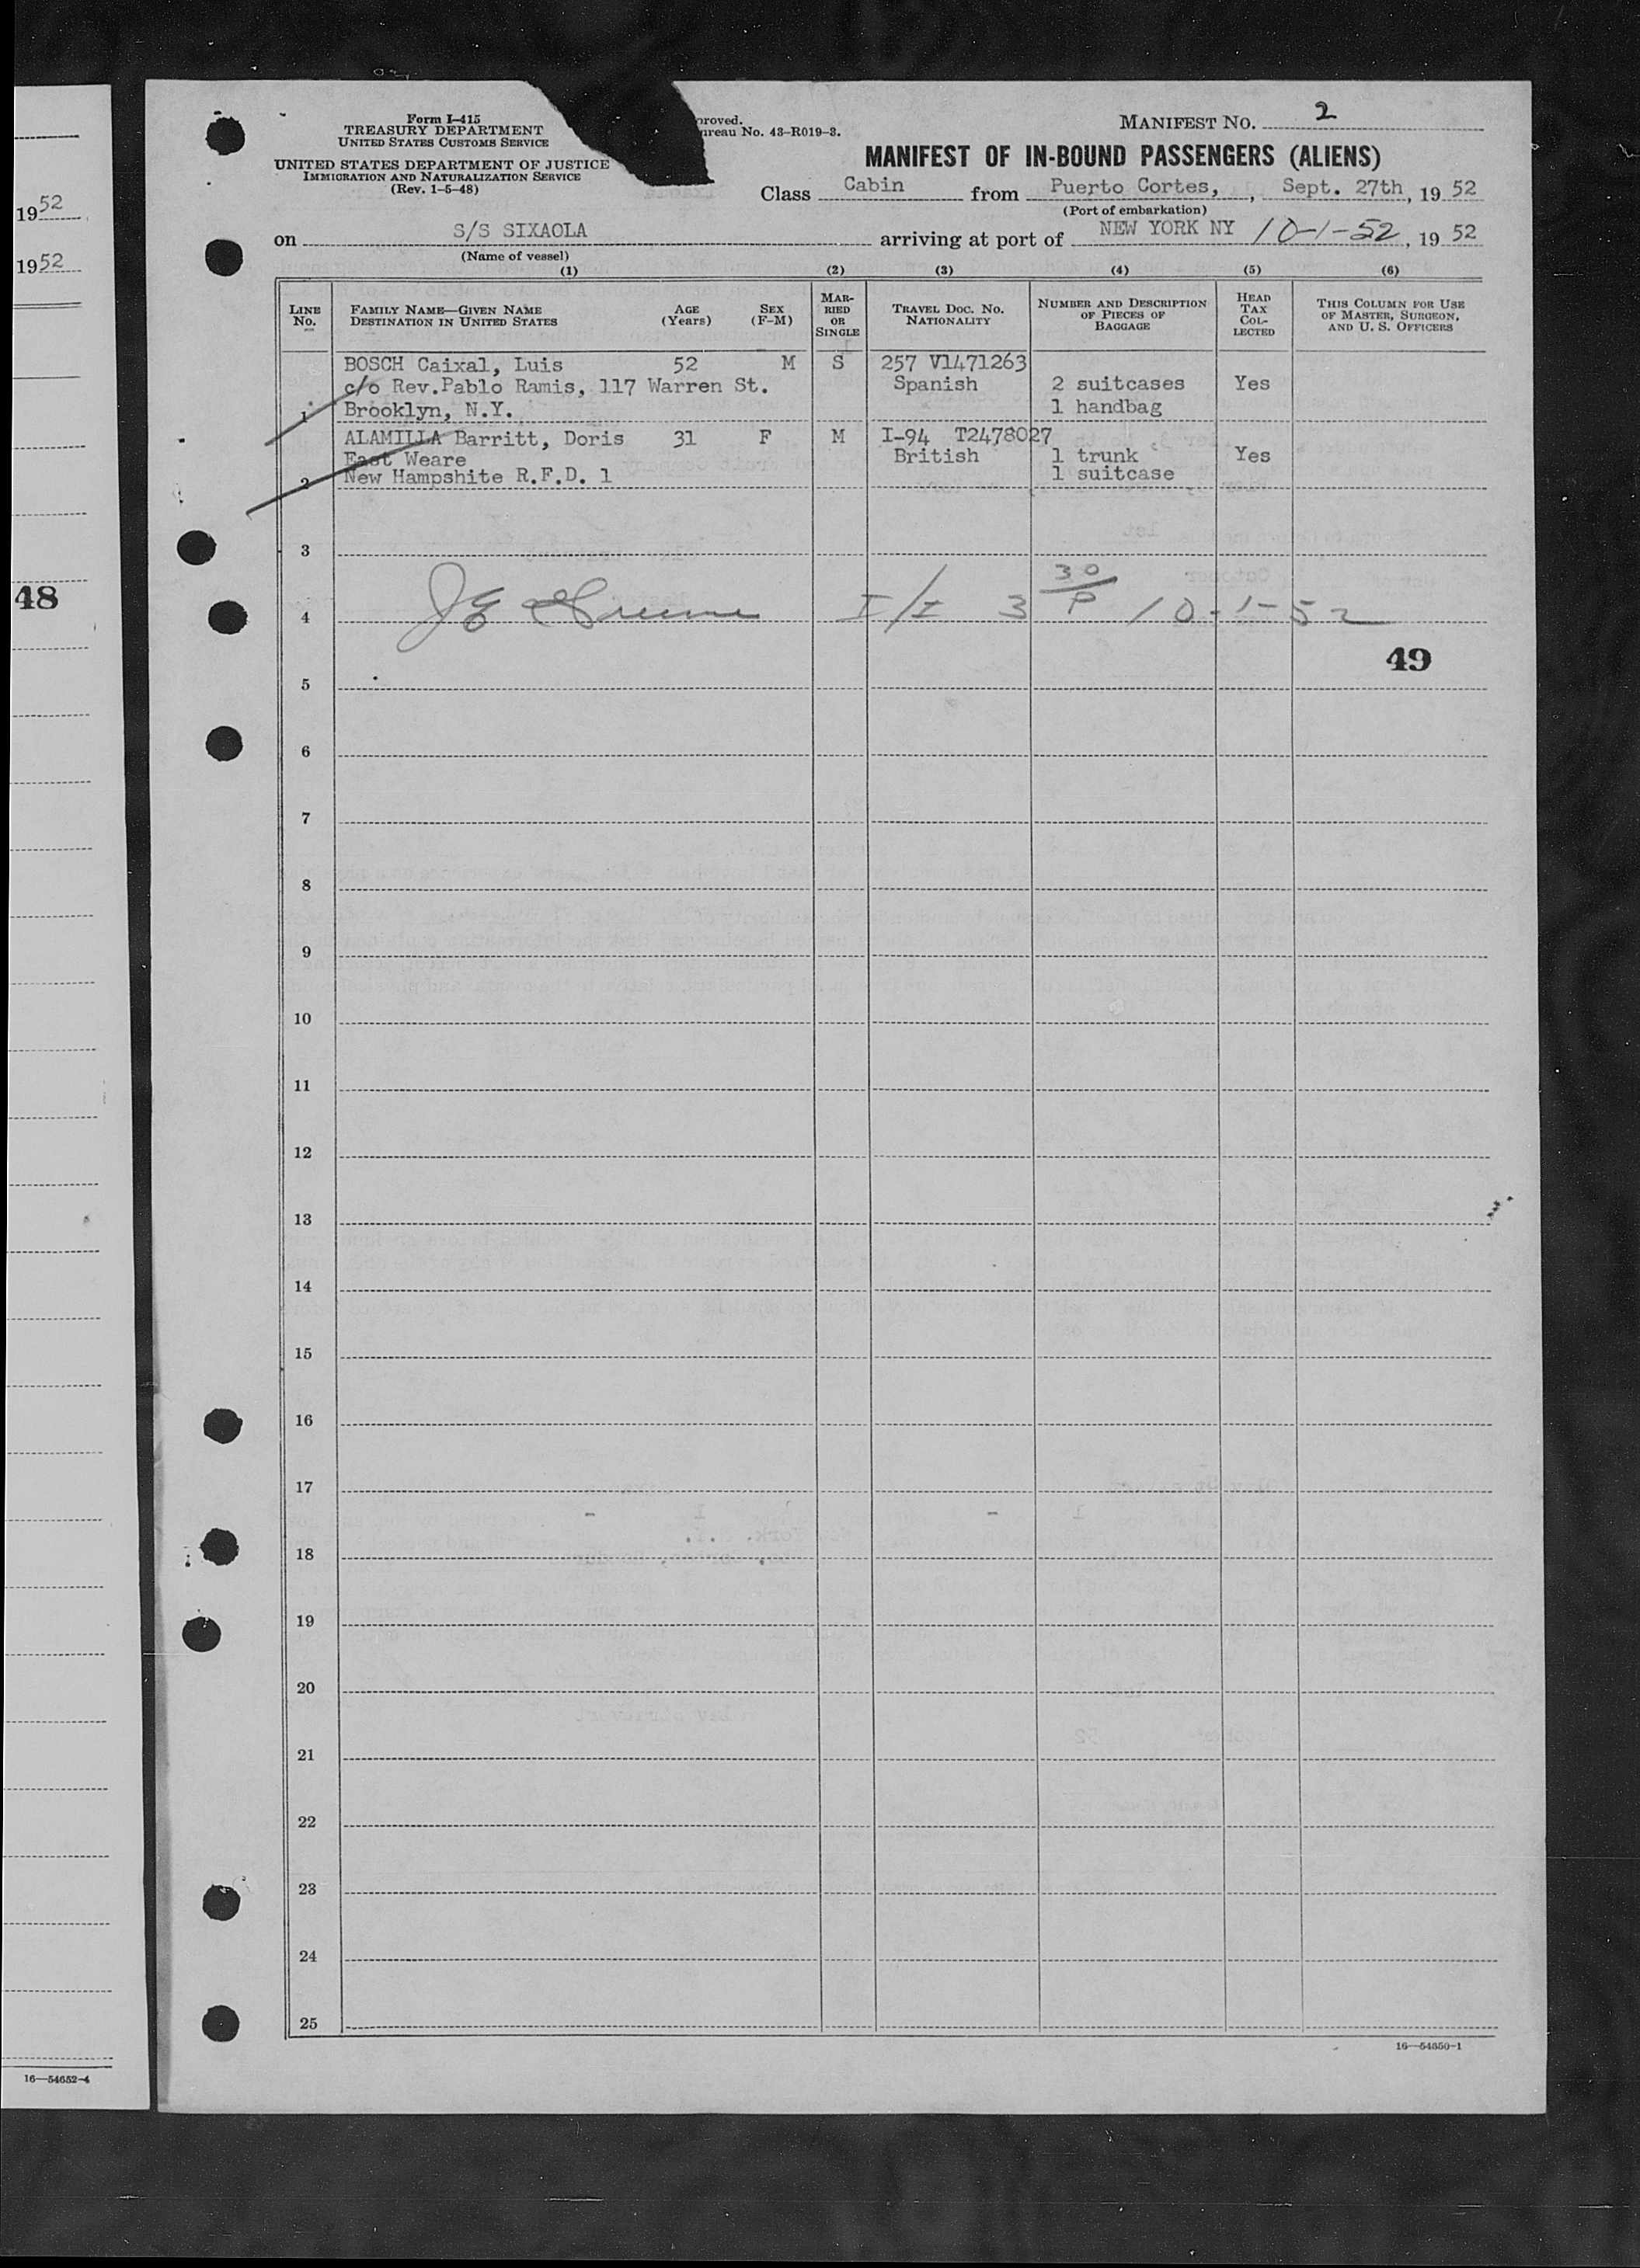 Form I-415
TREASURY DEPARTMENT
UNITED STATES CUSTOMS SERVICE
UNITED STATES DEPARTMENT OF JUSTICE
IMMIGRATION AND NATURALIZATION SERVICE
(Rev. 1-5-48)
proved.
ureau No. 43-R019-3.
MANIFEST NO. 2
MANIFEST OF IN-BOUND PASSENGERS (ALIENS)
Class Cabin from Puerto Cortes, , Sept. 27th, 19 52
(Port of embarkation)
on S/S SIXAOLA arriving at port of NEW YORK NY 10-1-52, 19 52
(Name of vessel)
(1) (2) (3) (4) (5) (6)
LINE No. FAMILY NAME—GIVEN NAME DESTINATION IN UNITED STATES AGE (Years) SEX (F-M) MARRIED OR SINGLE TRAVEL DOC. NO. NATIONALITY NUMBER AND DESCRIPTION OF PIECES OF BAGGAGE HEAD TAX COLLECTED THIS COLUMN FOR USE OF MASTER, SURGEON, AND U. S. OFFICERS
BOSCH Caixal, Luis 52 M S 257 V1471263
c/o Rev.Pablo Ramis, 117 Warren St. Spanish 2 suitcases Yes
1 Brooklyn, N.Y. 1 handbag
ALAMILLA Barritt, Doris 31 F M I-94 T2478027
East Weare British 1 trunk Yes
2 New Hampshite R.F.D. 1 1 suitcase
3
4 I/I 3 30/P 10-1-52
49
5
6
7
8
9
10
11
12
13
14
15
16
17
18
19
20
21
22
23
24
25
16—54650-1
1952
1952
48
16—54652-4